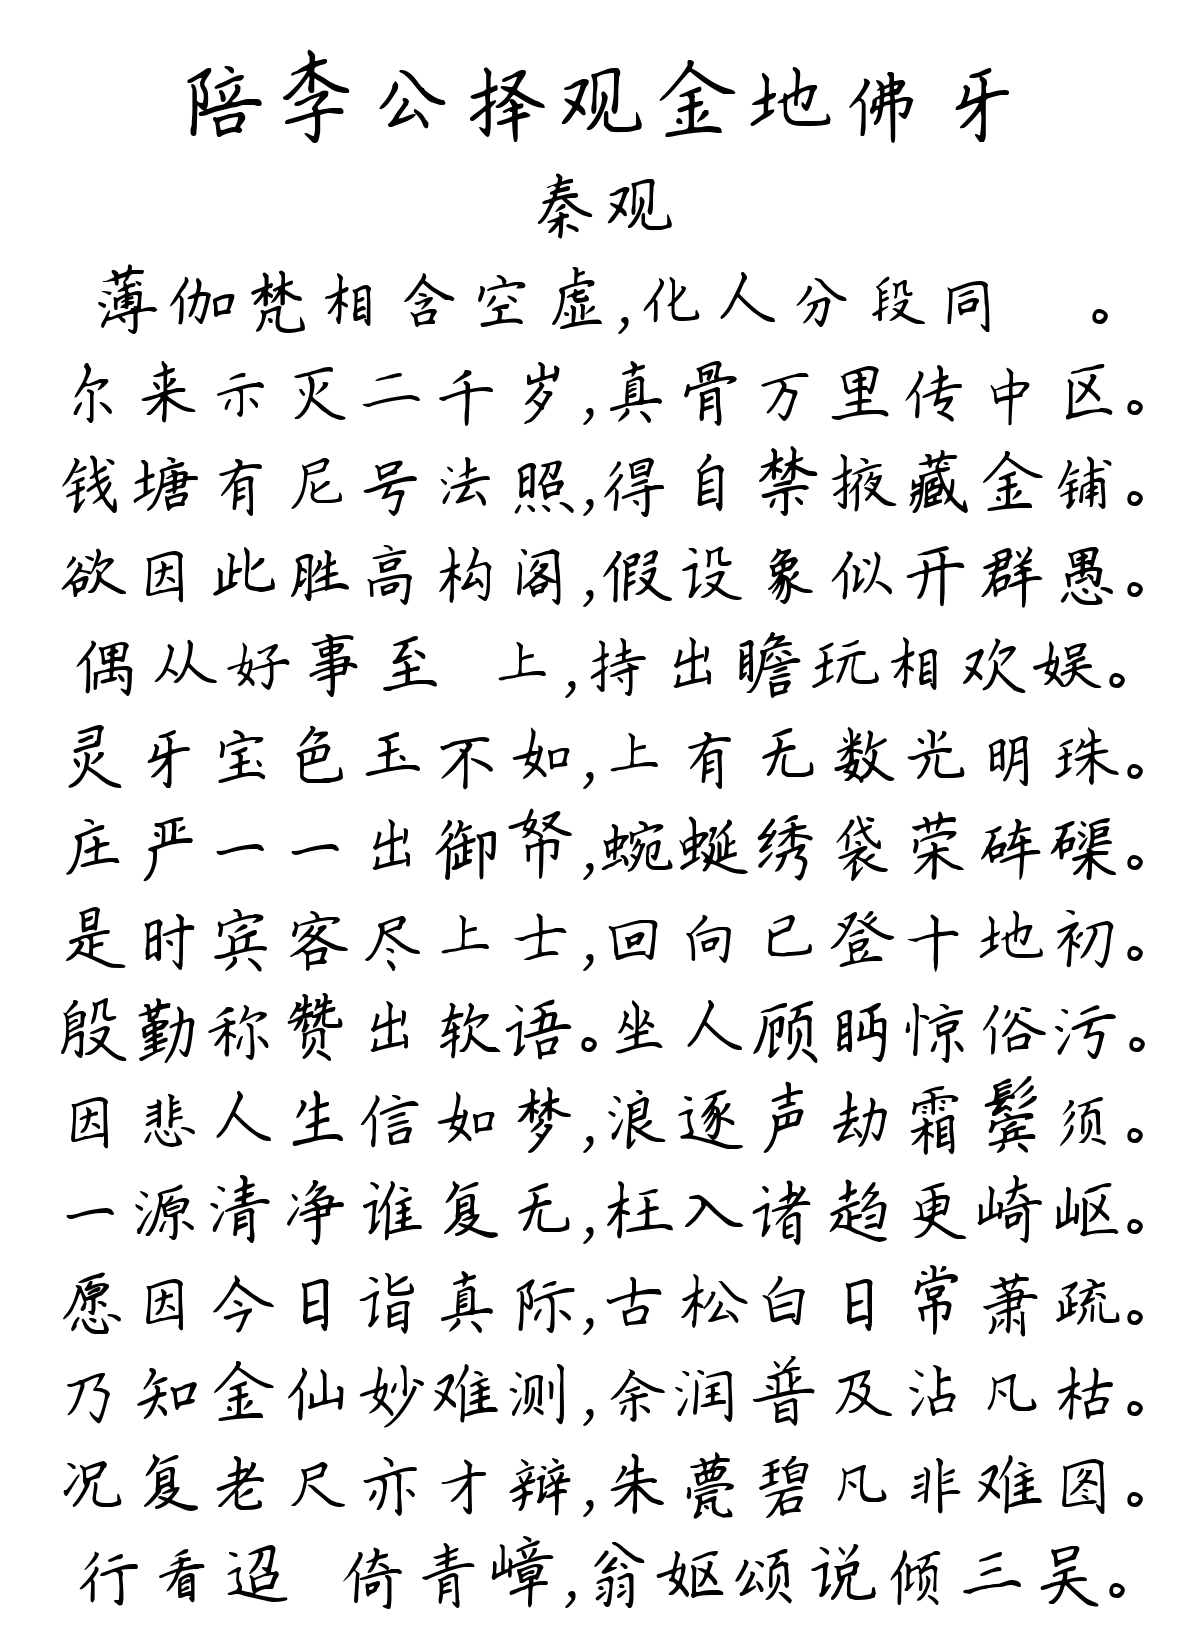 陪李公择观金地佛牙
秦观
薄伽梵相含空虚,化人分段同 。
尔来示灭二千岁,真骨万里传中区。
钱塘有尼号法照,得自禁掖藏金铺。
欲因此胜高构阁,假设象似开群愚。
偶从好事至 上,持出瞻玩相欢娱。
灵牙宝色玉不如,上有无数光明珠。
庄严一一出御帑,蜿蜒绣袋荣砗磲。
是时宾客尽上士,回向已登十地初。
殷勤称赞出软语。坐人顾眄惊俗污。
因悲人生信如梦,浪逐声劫霜鬓须。
一源清净谁复无,枉入诸趋更崎岖。
愿因今日诣真际,古松白日常萧疏。
乃知金仙妙难测,余润普及沾凡枯。
况复老尺亦才辩,朱甍碧凡非难图。
行看迢 倚青嶂,翁妪颂说倾三吴。